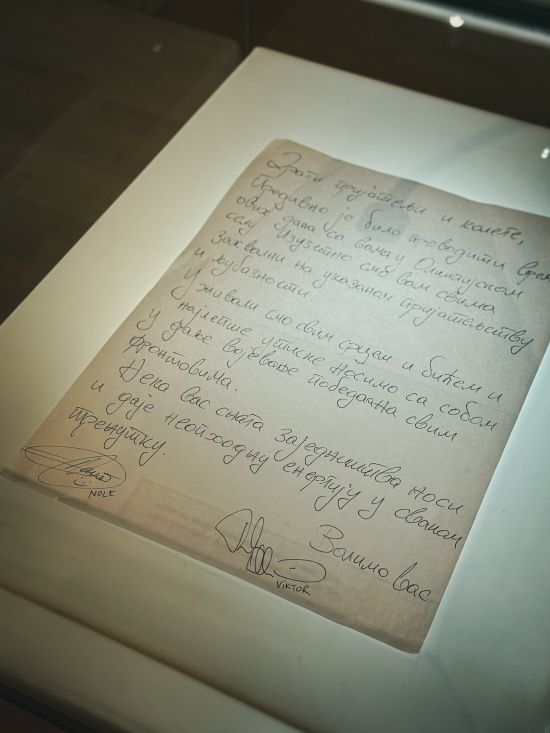 Драги пријатељи и колеге,
Предивно је било проводити време
ових дана са вама у Олимпијском
селу. Изузетно смо вам свима
захвални на указаном пријатељству
и љубазности
Уживали смо свим срцем и бићем и
најлепше утиске носимо са собом
у даље војевање победама свим
фронтовима.
Нека вас снага заједништва носи
и даје неопходну енергију у сваком
тренутку.
Волимо вас
NOLE
VIKTOR